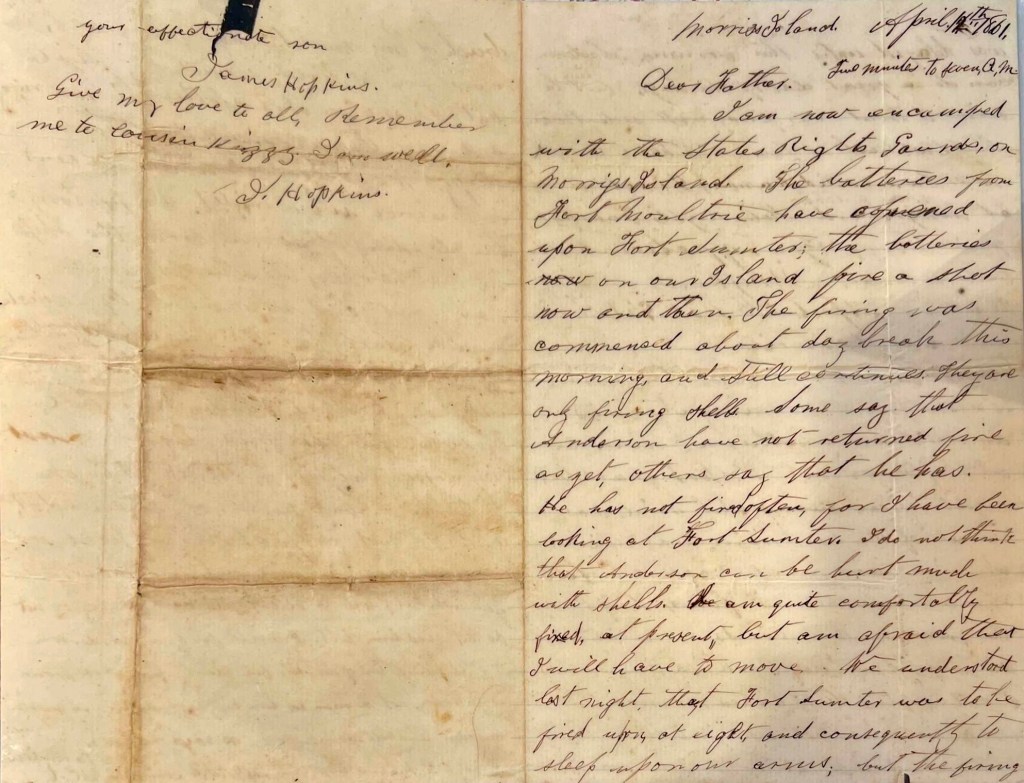 Morris Island. April, 12th/1861.
five minutes to seven, A,M.
Dear Father.
I am now encamped
with the States Rights Gaurds, on
Morriss Island. The batteries from
Fort Moultrie have openened
upon Fort Sumter; the batteries
now on our Island fire a shot
now and then. The firing was
commenced about day break this
morning, and still continues. They are
only firing shells Some say that
Anderson have not returned fire
as yet, others say that he has.
He has not fired often, for I have been
looking at Fort Sumter. I do not think
that Anderson can be hurt much
with shells. am quite comfortably
fixed, at present, but am afraid that
I will have to move. We understood
last night, that Fort Sumter was to be
fired upon, at eight, and consequently to
sleep upon our arms; but the firing
your affectionate son
James Hopkins.
Give my love to all, Remember
me to cousin Kizzy. I am well.
J. Hopkins.